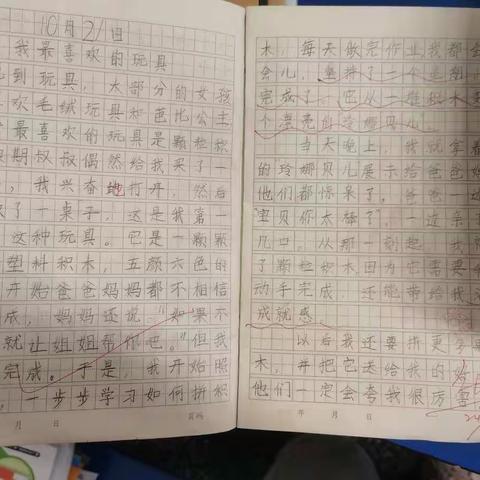 10月21日
我最喜欢的玩具
到玩具，大部分的女孩
欢毛绒玩具和芭比公主
最喜欢的玩具是颗粒积
期叔叔偶然给我买了一
，我兴奋地打开，然后
了一桌子，这是我第一
这种玩具。它是一颗颗
塑料积木，五颜六色的
开始爸爸妈妈都不相信
成，妈妈还说：“如果不
就让姐姐帮你吧。”但我
完成。于是，我开始照
一步步学习如何拼积
月 日
木，每天做完作业我都会
会儿，拼了一个
完成了。它从一堆积木变
个漂亮的玲娜贝儿。
当天晚上，我就拿着
的玲娜贝儿展示给爸爸妈
他们都惊呆了。爸爸一边
宝贝你太棒了”，一边亲
几口。从那一刻起，我就
了颗粒积木，因为它需要
动手完成，还能带给我
成就感。
以后我还要拼更多
木，并把它送给我的
他们一定会夸我很厉害
年 月 日